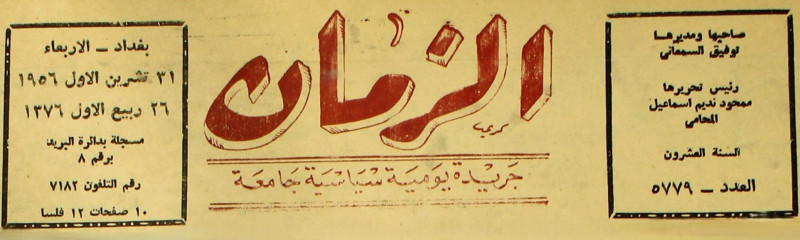 صاحبها ومديرهـا
توفيق السمعاني
رئيس تحريرها
محمود نديم اسماعيل
المحامي
السنة العشرون
العدد ــ ٥٧٧٩
الزمان
كريم
جريدة يومية سياسية جامعة
بغداد ــ الاربعاء
٣١ تشرين الاول ١٩٥٦
٢٦ ربيع الاول ١٣٧٦
مسجلة بدائرة البريد
برقم ٨
رقم التلفون ٧١٨٢
١٠ صفحات ١٢ فلسا